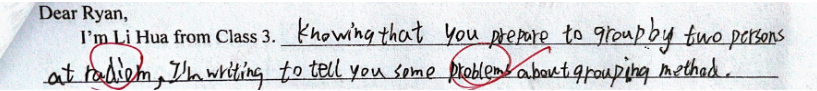 Dear Ryan,
I'm Li Hua from Class 3. Knowing that you prepare to group by two persons
at radiom, I'm writing to tell you some problems about grouping method.